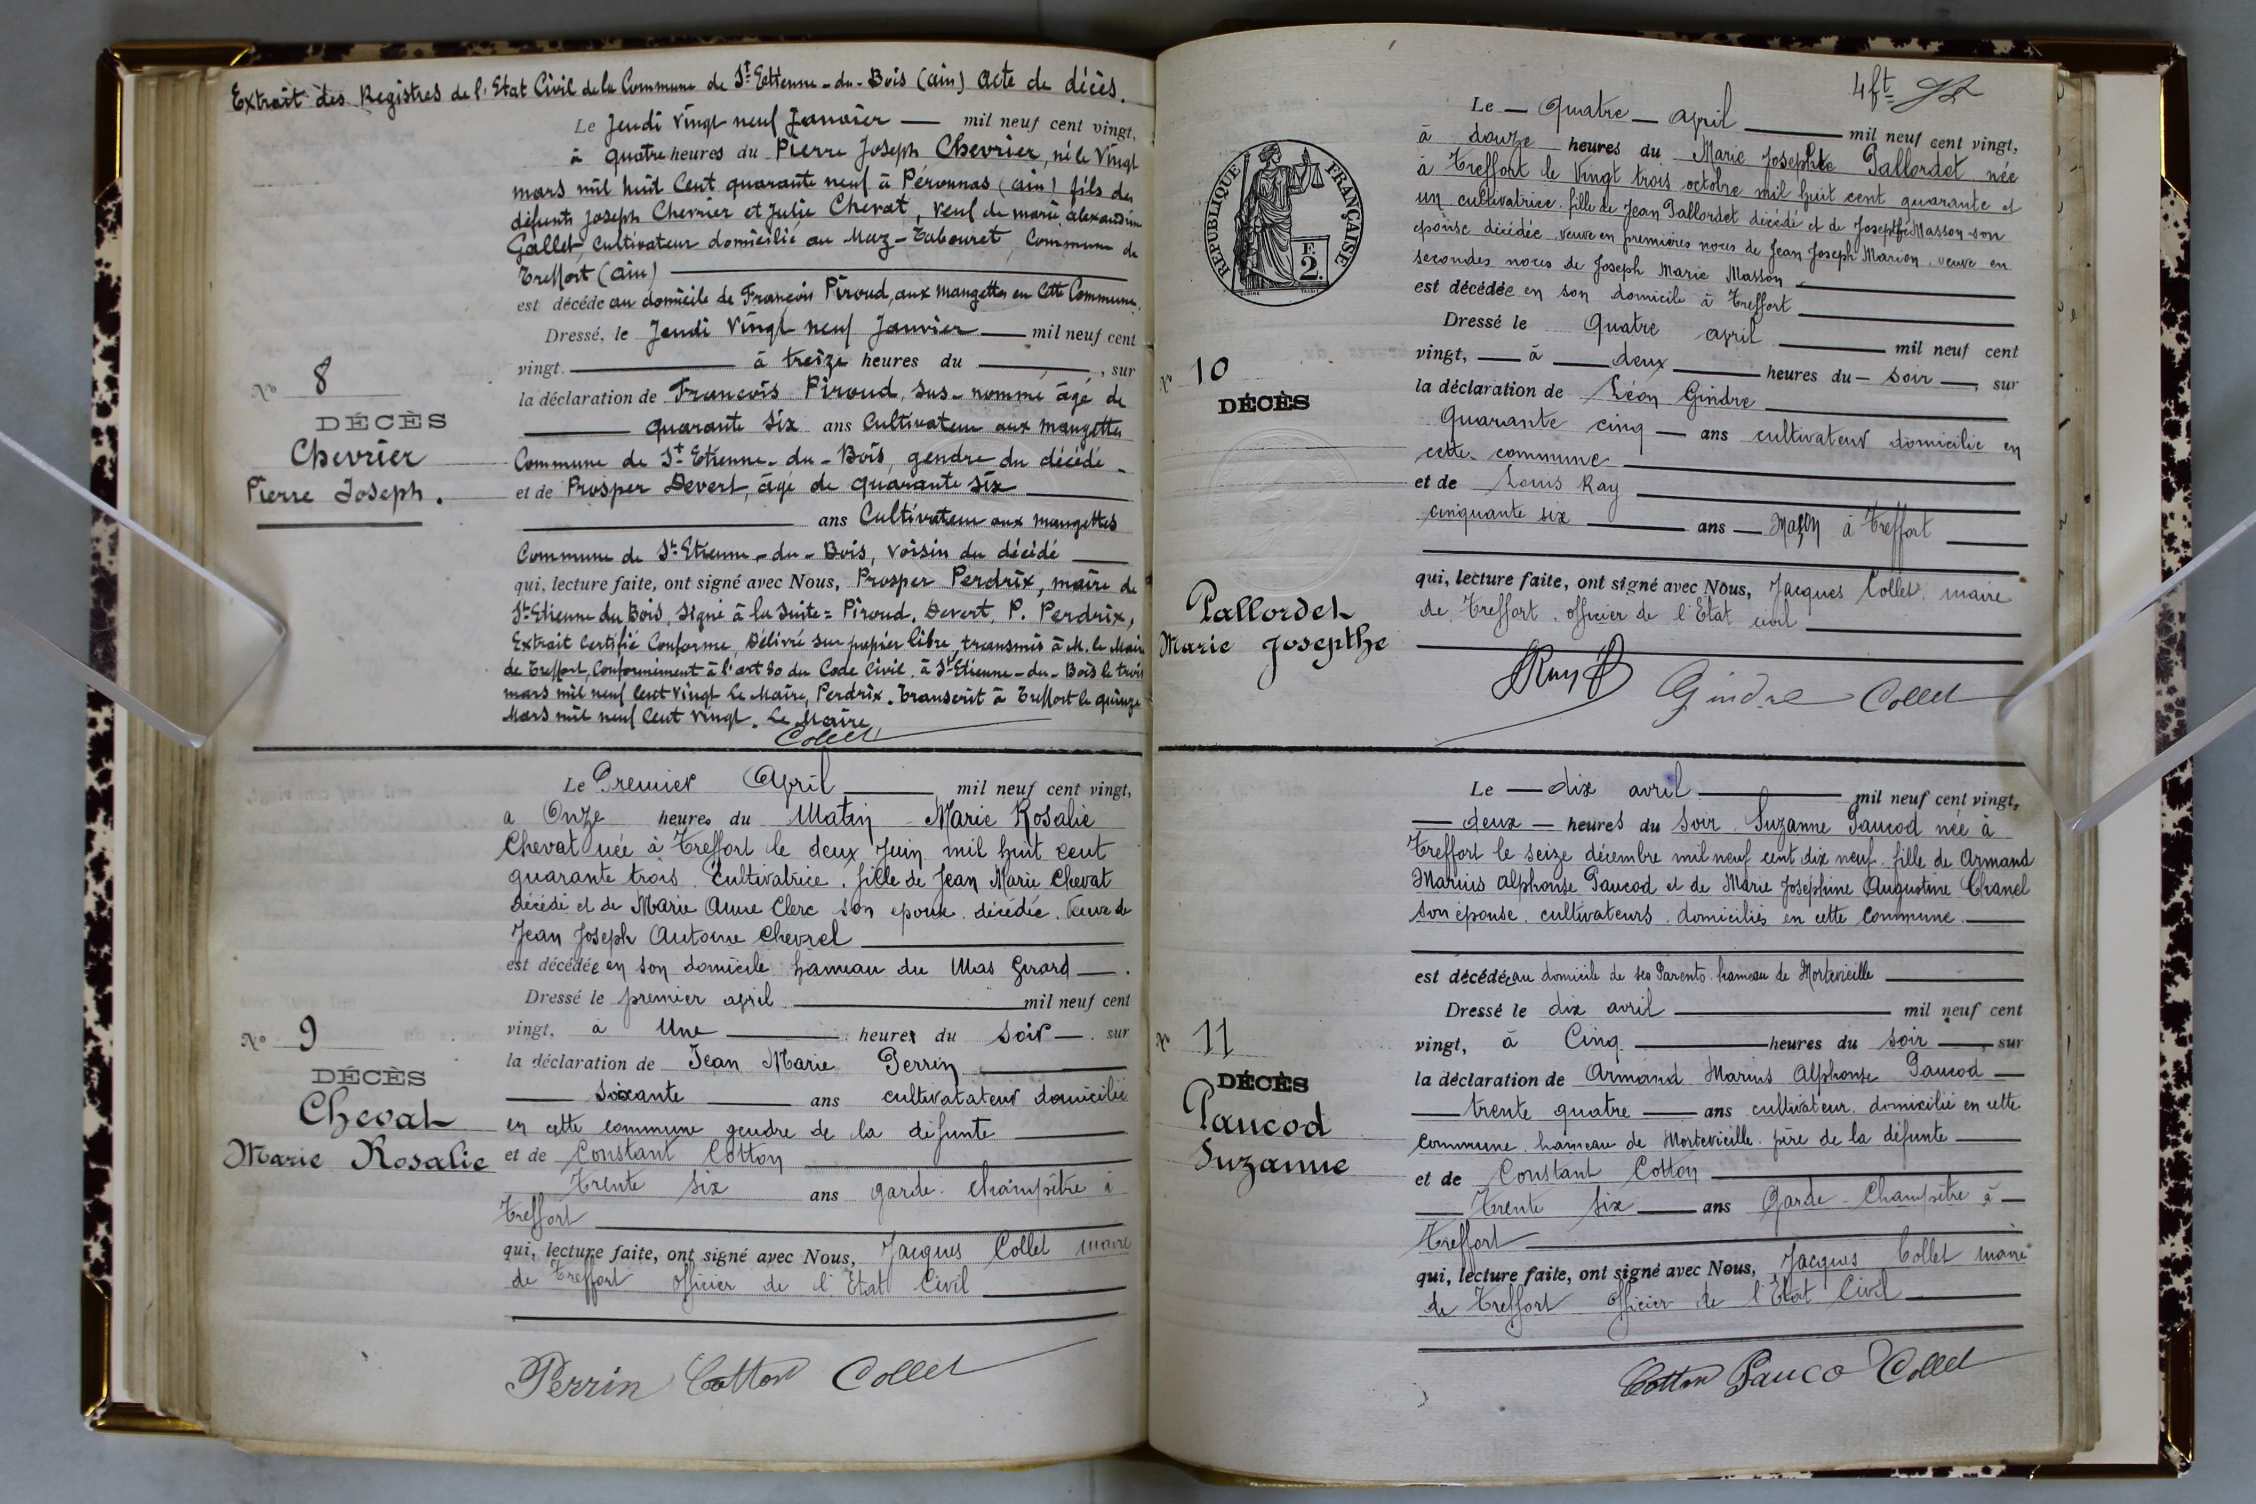 Extrait des Registres de l'Etat Civil de la Commune de St Etienne-du-Bois (ain) Acte de décès.
Le Jeudi vingt neuf Janvier — mil neuf cent vingt,
à quatre heures du Pierre Joseph Chevrier, né le Vingt
mars mil huit Cent quarante neuf à Peronnas (ain) fils des
défunts Joseph Chevrier et Julie Chevat, veuf de marie alexandrine
Gallet, Cultivateur domicilié au Maz-Tabouret, Commune de
Treffort (ain)
est décédé au domicile de François Piroud, aux mangettes en Cette Commune.
Dressé, le Jeudi Vingt neuf Janvier — mil neuf cent
vingt. — à treize heures du —, sur
la déclaration de François Piroud, sus-nommé âgé de
— quarante six ans Cultivateur aux mangettes
Commune de St Etienne-du-Bois, gendre du décédé
et de Prosper Devert, âgé de quarante six
— ans Cultivateur aux mangettes
Commune de St Etienne-du-Bois, voisin du décédé
qui, lecture faite, ont signé avec Nous, Prosper Perdrix, maire de
St Etienne du Bois, signé à la suite = Piroud, Devert, P. Perdrix,
Extrait Certifié Conforme, Délivré sur papier libre, transmis à M. le Maire
de Treffort, Conformément à l'art 80 du Code Civil. à St Etienne-du-Bois le trois
mars mil neuf Cent Vingt Le Maire, Perdrix. Transcrit à Treffort le quinze
Mars mil neuf Cent Vingt. Le Maire
Collet
No 8
DÉCÈS
Chevrier
Pierre Joseph.
Le Premier Avril — mil neuf cent vingt,
a Onze heures du Matin Marie Rosalie
Chevat née à Treffort le deux Juin mil huit cent
quarante trois. Cultivatrice. fille de Jean Marie Chevat
décédé et de Marie Anne Clerc son epouse. décédée. Veuve de
Jean Joseph Antoine Chevrel
est décédée en son domicile hameau du Mas Girard —.
Dressé le premier avril — mil neuf cent
vingt, à Une — heures du soir —. sur
la déclaration de Jean Marie Perrin
— soixante — ans cultivatateur domicilié
en cette commune gendre de la défunte
et de Constant Cotton
Trente six ans garde-champêtre à
Treffort
qui, lecture faite, ont signé avec Nous, Jacques Collet maire
de Treffort officier de l'Etat Civil
Perrin Cotton Collet
No 9
DÉCÈS
Chevat
Marie Rosalie
4ft
REPUBLIQUE FRANÇAISE
F.
2.
Le — Quatre — avril — mil neuf cent vingt,
à douze heures du Marie Josephte Pallordet née
à Treffort le Vingt trois octobre mil huit cent quarante et
un cultivatrice. fille de Jean Pallordet décédé et de Josepthe Masson son
epouse décédée. veuve en premières noces de Jean Joseph Marion. veuve en
secondes noces de Joseph Marie Masson
est décédée en son domicile à Treffort
Dressé le Quatre avril — mil neuf cent
vingt, — à — deux — heures du — soir —, sur
la déclaration de Léon Gindre
Quarante cinq — ans cultivateur domicilié en
cette commune
et de Louis Ray
cinquante six — ans — Maçon à Treffort
qui, lecture faite, ont signé avec Nous, Jacques Collet, maire
de Treffort. officier de l'Etat civil
Ray Gindre Collet
No 10
DÉCÈS
Pallordet
Marie Josepthe
Le — dix avril — mil neuf cent vingt,
— deux — heures du soir Suzanne Paucod née à
Treffort le seize décembre mil neuf cent dix neuf. fille de Armand
Marius Alphonse Paucod et de Marie Josephine Augustine Chanel
son épouse. cultivateurs. domiciliés en cette commune.
est décédée au domicile de ses Parents. hameau de Mortevieille
Dressé le dix avril — mil neuf cent
vingt, à Cinq — heures du soir —, sur
la déclaration de Armand Marius Alphonse Paucod —
— trente quatre — ans cultivateur. domicilié en cette
commune. hameau de Mortevieille. père de la défunte
et de Constant Cotton
— Trente six — ans Garde-Champêtre à —
Treffort
qui, lecture faite, ont signé avec Nous, Jacques Collet maire
de Treffort officier de l'Etat Civil
Cotton Pauco Collet
No 11
DÉCÈS
Paucod
Suzanne